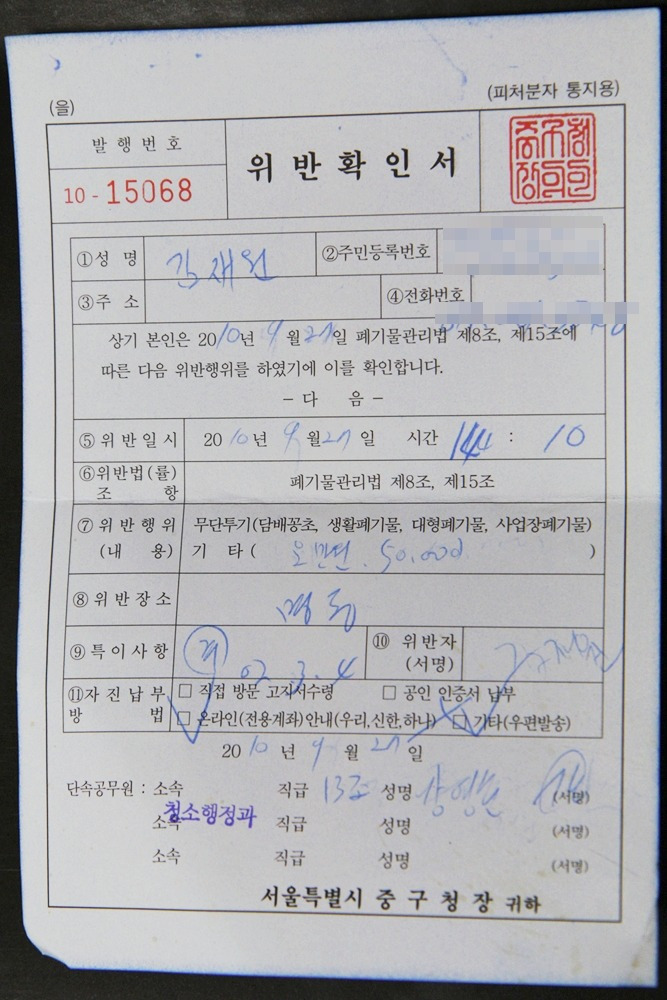 (을)
(피처분자 통지용)
발행번호
10 - 15068
위반확인서
중구청
장의인
①성 명 김재원 ②주민등록번호
③주 소 ④전화번호
상기 본인은 2010년 9월 27일 폐기물관리법 제8조, 제15조에
따른 다음 위반행위를 하였기에 이를 확인합니다.
- 다 음 -
⑤위반일시 2010년 9월 27일 시간 14 : 10
⑥위반법(률)
조 항
폐기물관리법 제8조, 제15조
⑦위반행위
(내 용)
무단투기(담배꽁초, 생활폐기물, 대형폐기물, 사업장폐기물)
기 타 ( 오만원. 50,000 )
⑧위반장소 명동
⑨특이사항
⑩ 위반자
(서명)
김재원
⑪자진납부
방 법
□ 직접 방문 고지서수령 □ 공인 인증서 납부
□ 온라인(전용계좌)안내(우리,신한,하나) □ 기타(우편발송)
2010년 9월 27일
단속공무원 : 소속 직급 13조 성명 (서명)
청소행정과
소속 직급 성명 (서명)
소속 직급 성명 (서명)
서울특별시 중구청장 귀하